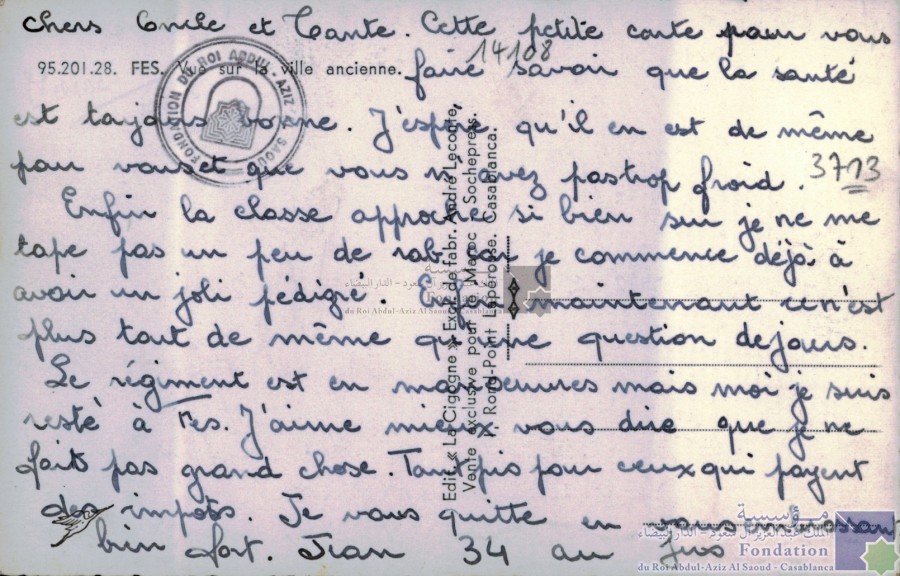 Chers Oncle et Tante. Cette petite carte pour vous
14108
95.201.28. FES. Vue sur la ville ancienne.
faire savoir que la santé
FONDATION DU ROI ABDUL-AZIZ
est toujours bonne. J'espère qu'il en est de même
pour vous et que vous n'avez pas trop froid.
3713
Enfin la classe approche si bien sur je ne me
tape pas un peu de rab car je commence déjà à
avoir un joli pédigré. Enfin maintenant ce n'est
plus tout de même qu'une question de jours.
Le régiment est en manoeuvres mais moi je suis
resté à Fes. J'aime mieux vous dire que je ne
fais pas grand chose. Tant pis pour ceux qui payent
des impots. Je vous quitte en vous embrassant
bien fort. Jean 34 au Jus
Edit. « La Cigogne » Excl. de fabr. André Leconte,
Vente exclusive pour le Maroc : Sochepress,
1, Rond-Point Lapérouse. Casablanca.
مؤسسة
الملك عبد العزيز آل سعود - الدار البيضاء
Fondation
du Roi Abdul-Aziz Al Saoud - Casablanca
مؤسسة
الملك عبد العزيز آل سعود - الدار البيضاء
Fondation
du Roi Abdul-Aziz Al Saoud - Casablanca